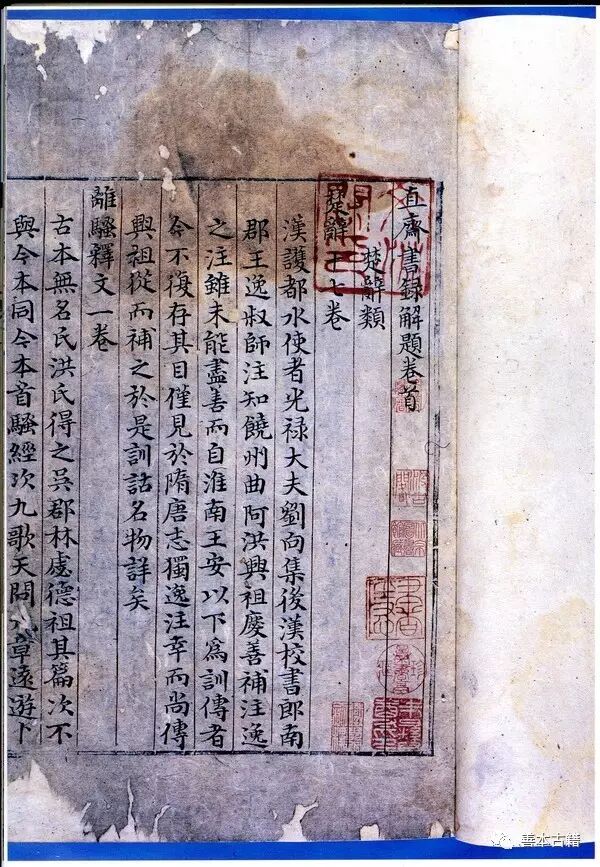 直齋書錄解題卷首
楚辭類
楚辭十七卷
漢護都水使者光祿大夫劉向集後漢校書郎南
郡王逸叔師注知饒州曲阿洪興祖慶善補注逸
之注雖未能盡善而自淮南王安以下爲訓傳者
今不復存其目僅見於隋唐志獨逸注幸而尚傳
興祖從而補之於是訓詁名物詳矣
離騷釋文一卷
古本無名氏洪氏得之吳郡林虙德祖其篇次不
與今本同今本首騷經次九歌天問九章遠遊卜
善本古籍